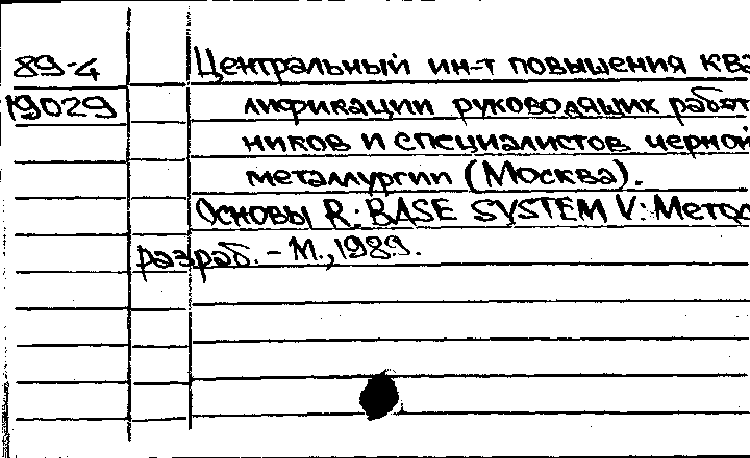 89-4
Центральный ин-т повышения ква
19029
лификации руководящих работ
ников и специалистов черной
металлургии (Москва).
Основы R:BASE SYSTEM V: Метод
разраб. - М., 1989.